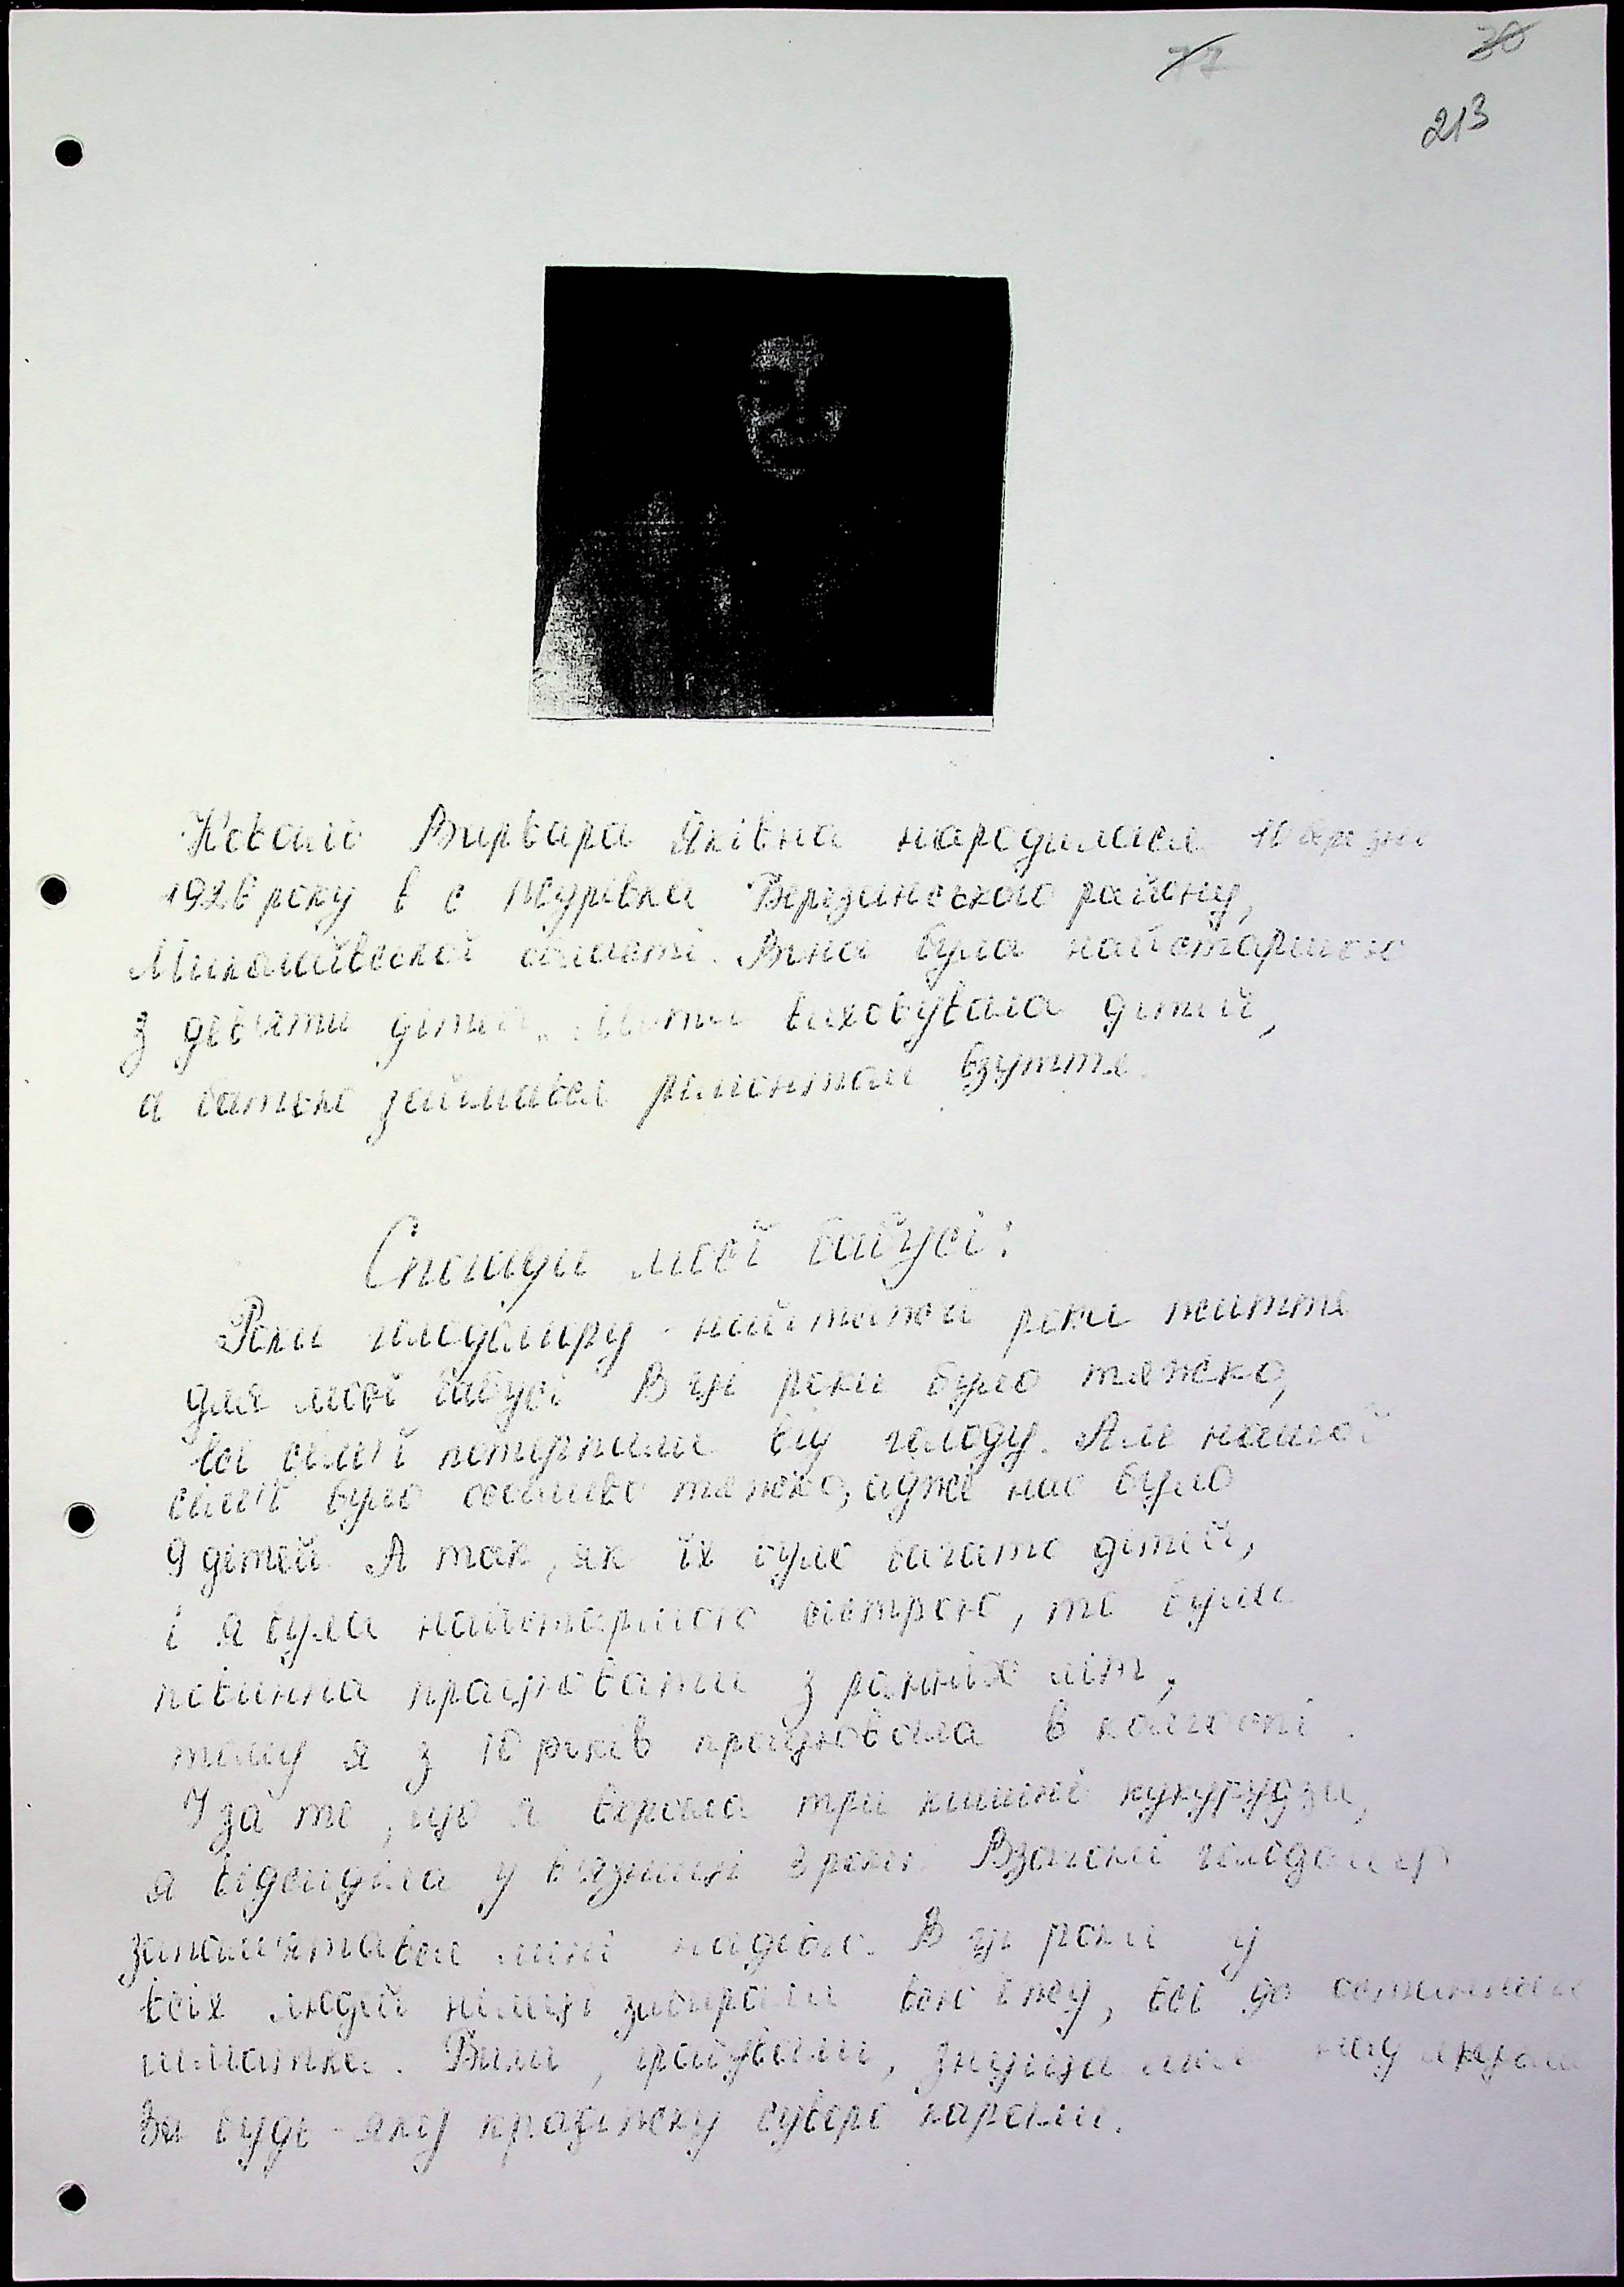 77
30
213
Коваль Варвара Яківна народилася 10 березня
1926 року в с Журівка Березанського району,
Миколаївської області. Вона була найстаршою
з дев'яти дітей. Мати виховувала дітей,
а батько займався ремонтом взуття.
Спогади моєї бабусі:
Роки голодомору - найтяжчі роки життя
для моєї бабусі В ці роки було тяжко,
всі сім'ї потерпали від голоду. Але нашої
сім'ї було особливо тяжко, адже нас було
9 дітей. А так, як їх було багато дітей,
і я була найстаршою сестрою, то була
повинна працювати з ранніх літ,
тому я з 10 років працювала в колгоспі.
І за те, що я вкрала три кишені кукурудзи,
я відсиділа у в'язниці 3 роки. Взагалі голодомор
запам'ятався мені надовго. В ці роки у
всіх людей німці забирали всю їжу, всі до останньої
шматки. Били, ґвалтували, знущалися над людьми
За будь-яку крадіжку суворо карали.